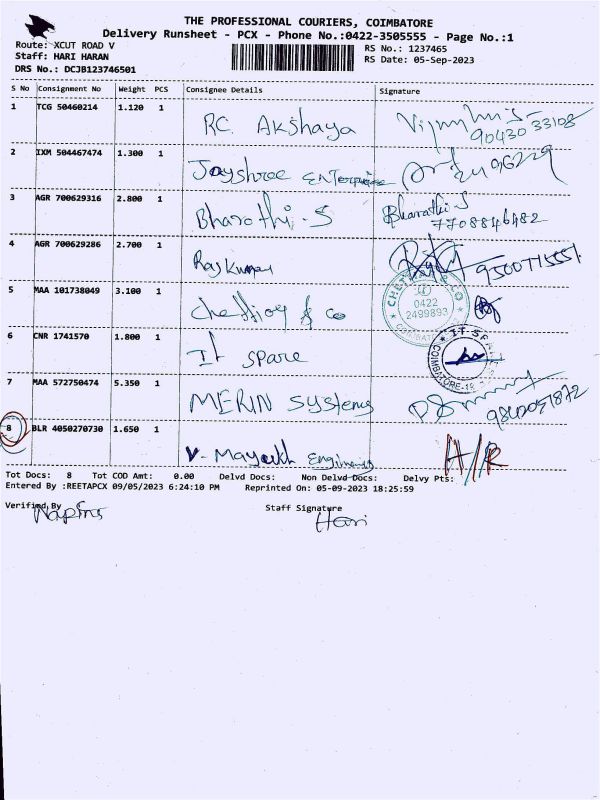 THE PROFESSIONAL COURIERS, COIMBATORE
Delivery Runsheet - PCX - Phone No.:0422-3505555 - Page No.:1
Route: XCUT ROAD V
RS No.: 1237465
Staff: HARI HARAN
RS Date: 05-Sep-2023
DRS No.: DCJB123746501
S No Consignment No Weight PCS Consignee Details Signature
1 TCG 50460214 1.120 1 RC. Akshaya 90430 33108
2 IXM 504467474 1.300 1 Jayshree Enterprise
3 AGR 700629316 2.800 1 Bharathi.S Bharathi.S
7708846482
4 AGR 700629286 2.700 1 RajKumar
5 MAA 101738049 3.100 1 Chettiar & Co CHETTIAR & CO 0422 2499893 COIMBATORE
6 CNR 1741570 1.800 1 It Spare IT SPARE COIMBATORE-18
7 MAA 572750474 5.350 1 MERIN Systems 9840051872
8 BLR 4050270730 1.650 1 V- Mayurkh Engineers H/R
Tot Docs: 8 Tot COD Amt: 0.00 Delvd Docs: Non Delvd Docs: Delvy Pts:
Entered By :REETAPCX 09/05/2023 6:24:10 PM Reprinted On: 05-09-2023 18:25:59
Verified By Staff Signature
Hari